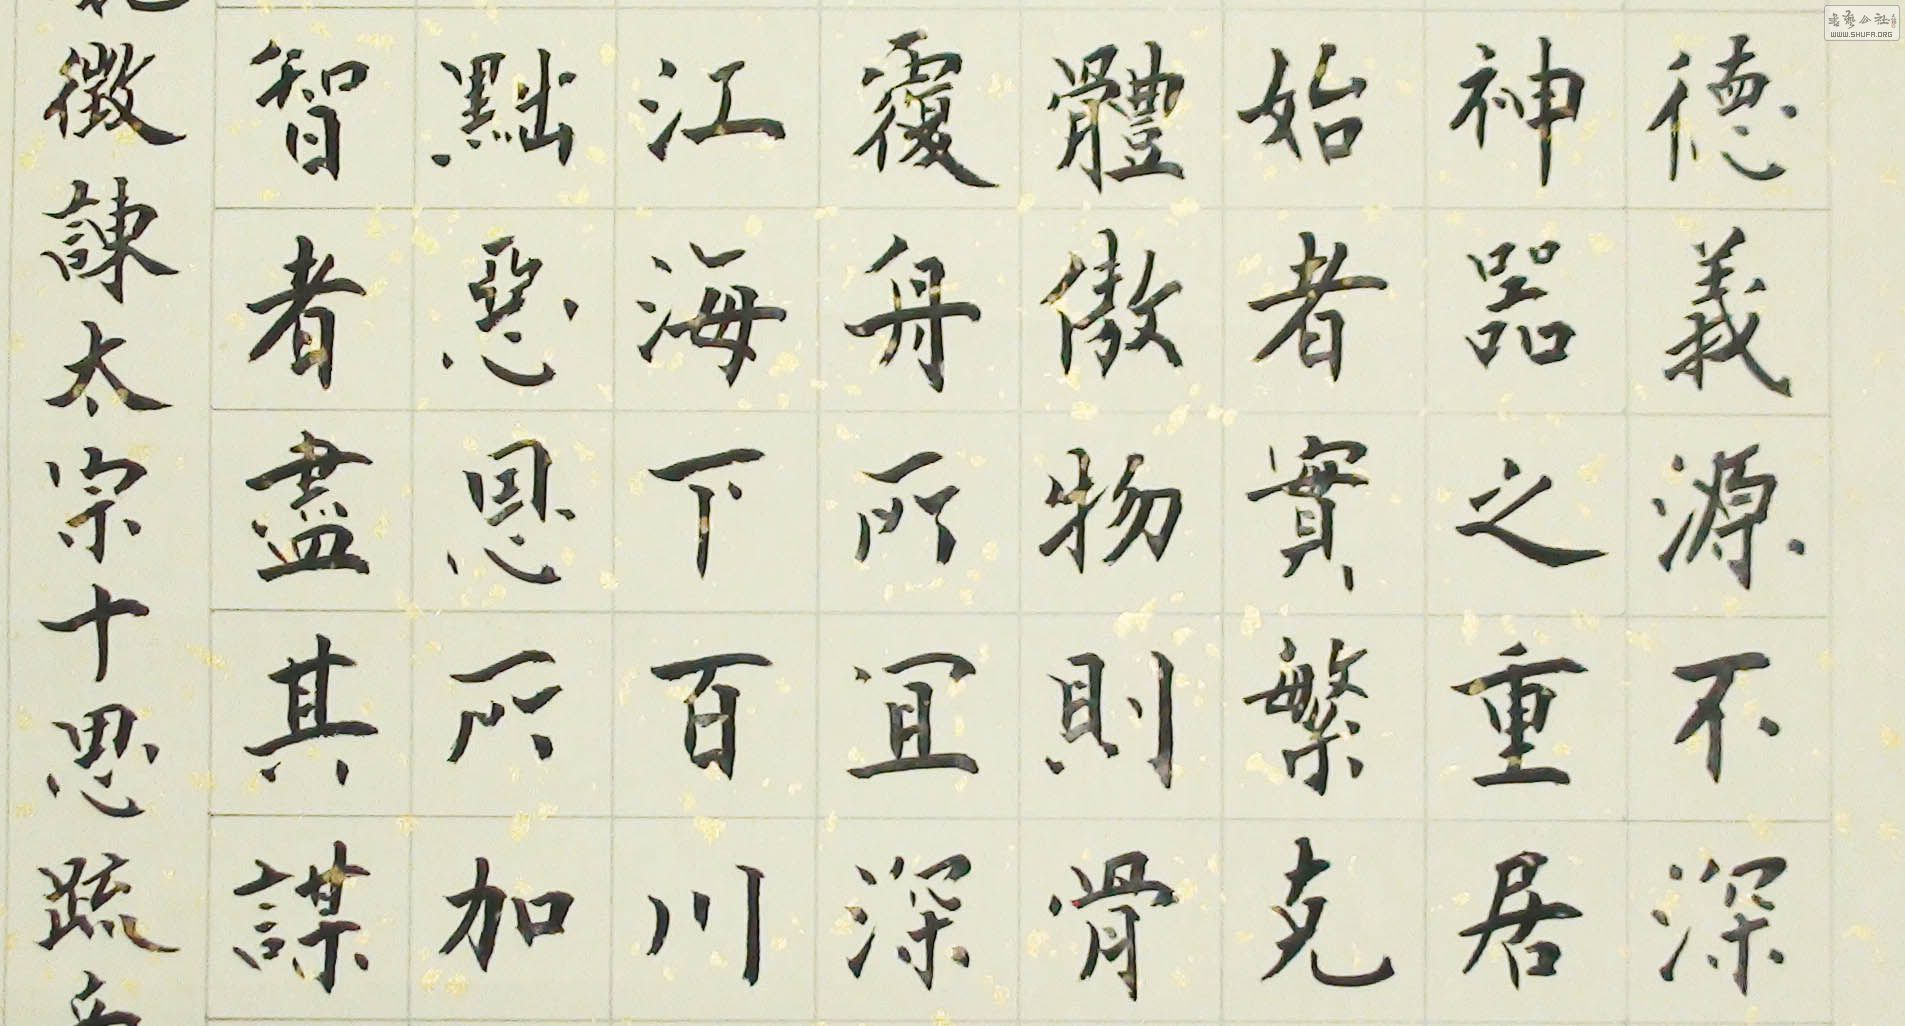 德義源不深
神器之重居
始者實繁克
體傲物則骨
覆舟所宜深
江海下百川
黜惡恩所加
智者盡其謀
徵諫太宗十思疏
书艺公社
WWW.SHUFA.ORG